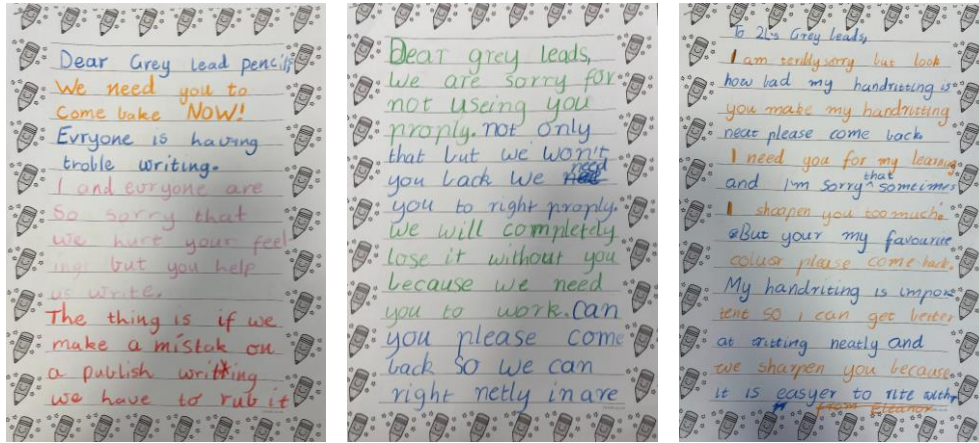 Dear Grey lead pencils
We need you to
Come bake NOW!
Evryone is having
troble writing.
I and evryone are
so sorry that
we hurt your feel-
ings but you help
us write.
The thing is if we
make a mistak on
a publish writting
we have to rub it
Dear grey leads,
We are sorry for
not useing you
proply. not only
that but we won't
you back we need
you to right proply.
We will completly
lose it without you
because we need
you to work. Can
you please come
back so we can
right netly in are
To 2L's Grey Leads,
I am terribly sorry but look
how bad my handritting is
you make my handritting
neat please come back
I need you for my learning
and I'm sorry that sometimes
I sharpen you too much.
But your my favourite
colour please come back.
My handriting is impor
tent so i can get better
at ritting neatly and
we sharpen you because
it is easyer to rite with,
from Eleanor